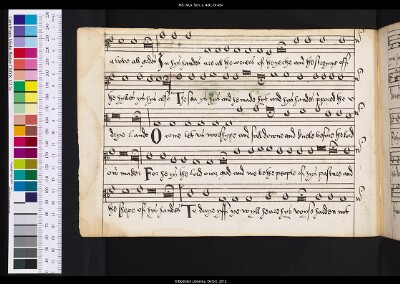 above all goddes In hys handes are all the corners of the yerthe and the strength off
the hylles ys hys also The sea ys hys and he made hyt and hys handes the
drye lande O come let us worshyppe and fall downe and knele before the lord
our maker For he ys the lord our god and we be the people of hys pasture and
the shepe of hys handes To daye yff ye wyll heare hys voyce harden not
©Bodleian Libraries, Oxford, 2012